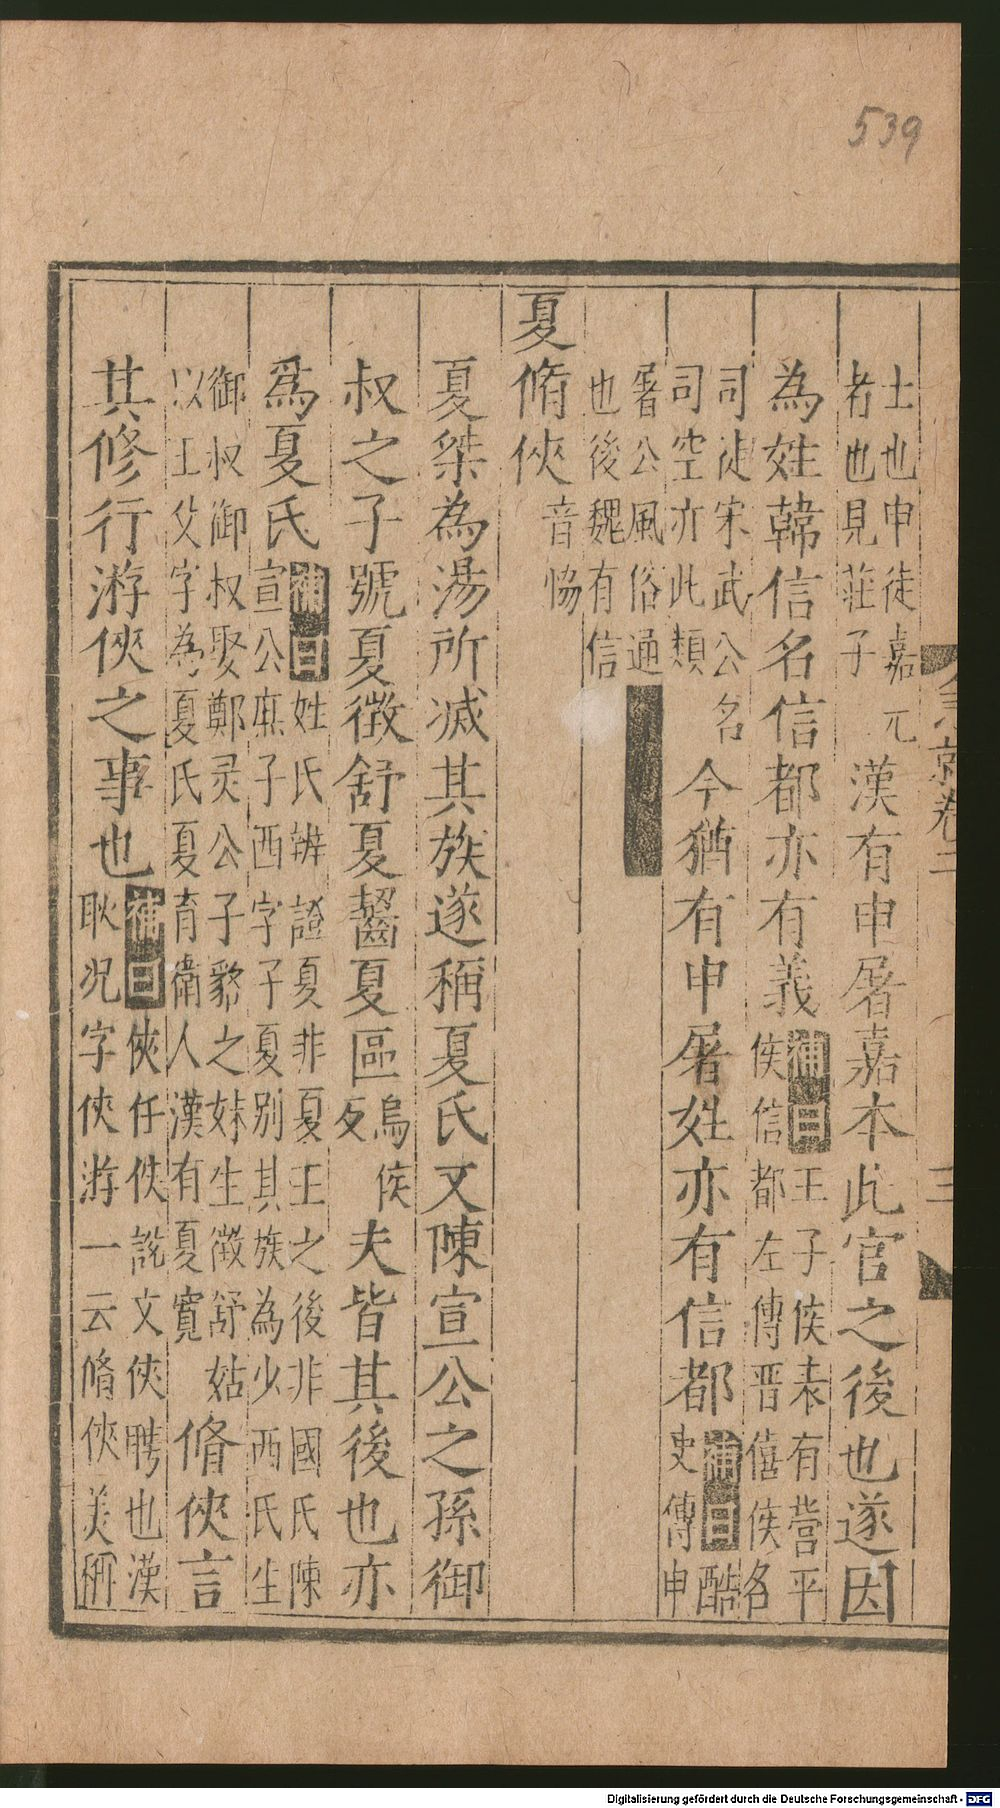 539
士也申徒嘉元
者也見莊子
漢有申屠嘉本此官之後也遂因
為姓韓信名信都亦有義
補曰
王子侯表有營平
侯信都左傳晋僖侯名
司徒宋武公名
司空亦此類
今猶有申屠姓亦有信都
補曰酷
史傳申
屠公風俗通
也後魏有信
夏脩俠
音恊
夏桀為湯所滅其族遂稱夏氏又陳宣公之孫御
叔之子號夏徵舒夏齧夏區
烏侯
反
夫皆其後也亦
爲夏氏
補曰姓氏辨證夏非夏王之後非國氏陳
宣公庶子西字子夏别其族為少西氏生
御叔御叔娶鄭灵公子貉之妹生徵舒姑
以王父字為夏氏夏育衛人漢有夏寬
脩俠言
其修行游俠之事也
補曰俠任佚說文俠聘也漢
耿况字俠游一云脩俠美稱
急就卷二
三
Digitalisierung gefördert durch die Deutsche Forschungsgemeinschaft - DFG